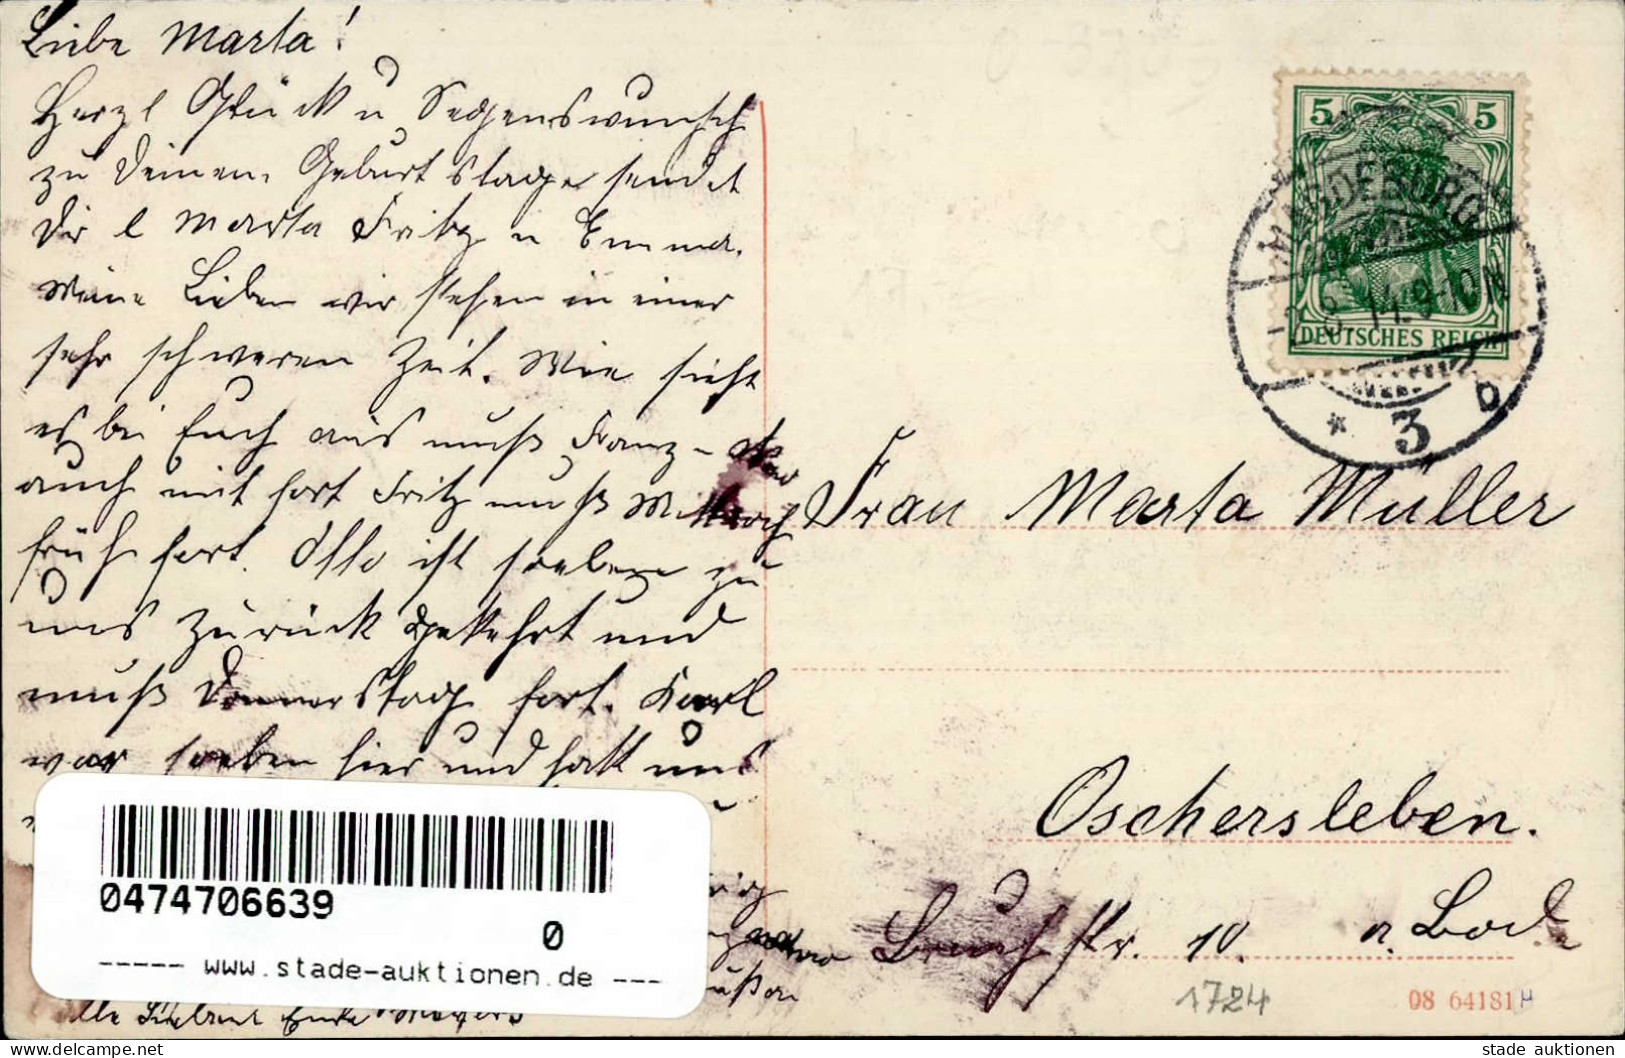 Liebe Marta!
Herzl Glück u Segenswunsch
zu Deinen, Geburtstage sendet
Dir l Marta Fritz u Emma.
Meine Lieben wir stehen in einer
sehr schweren Zeit. Wie sieht
es bei Euch aus muß Franz -
auch mit fort Fritz muß Mittwoch
früh fort. Otto ist soeben zu
uns zurück gekehrt und
muß Donnerstag fort. Karl
war soeben hier und hatt uns
5 5
MAGDEBURG
14.9-10N
DEUTSCHES REICH
* 3 b
Frau Marta Müller
Oschersleben.
a. Bode
Bruchstr. 10.
1724
08 64181
0474706639
0
----- www.stade-auktionen.de ---
delcampe.net
stade auktionen